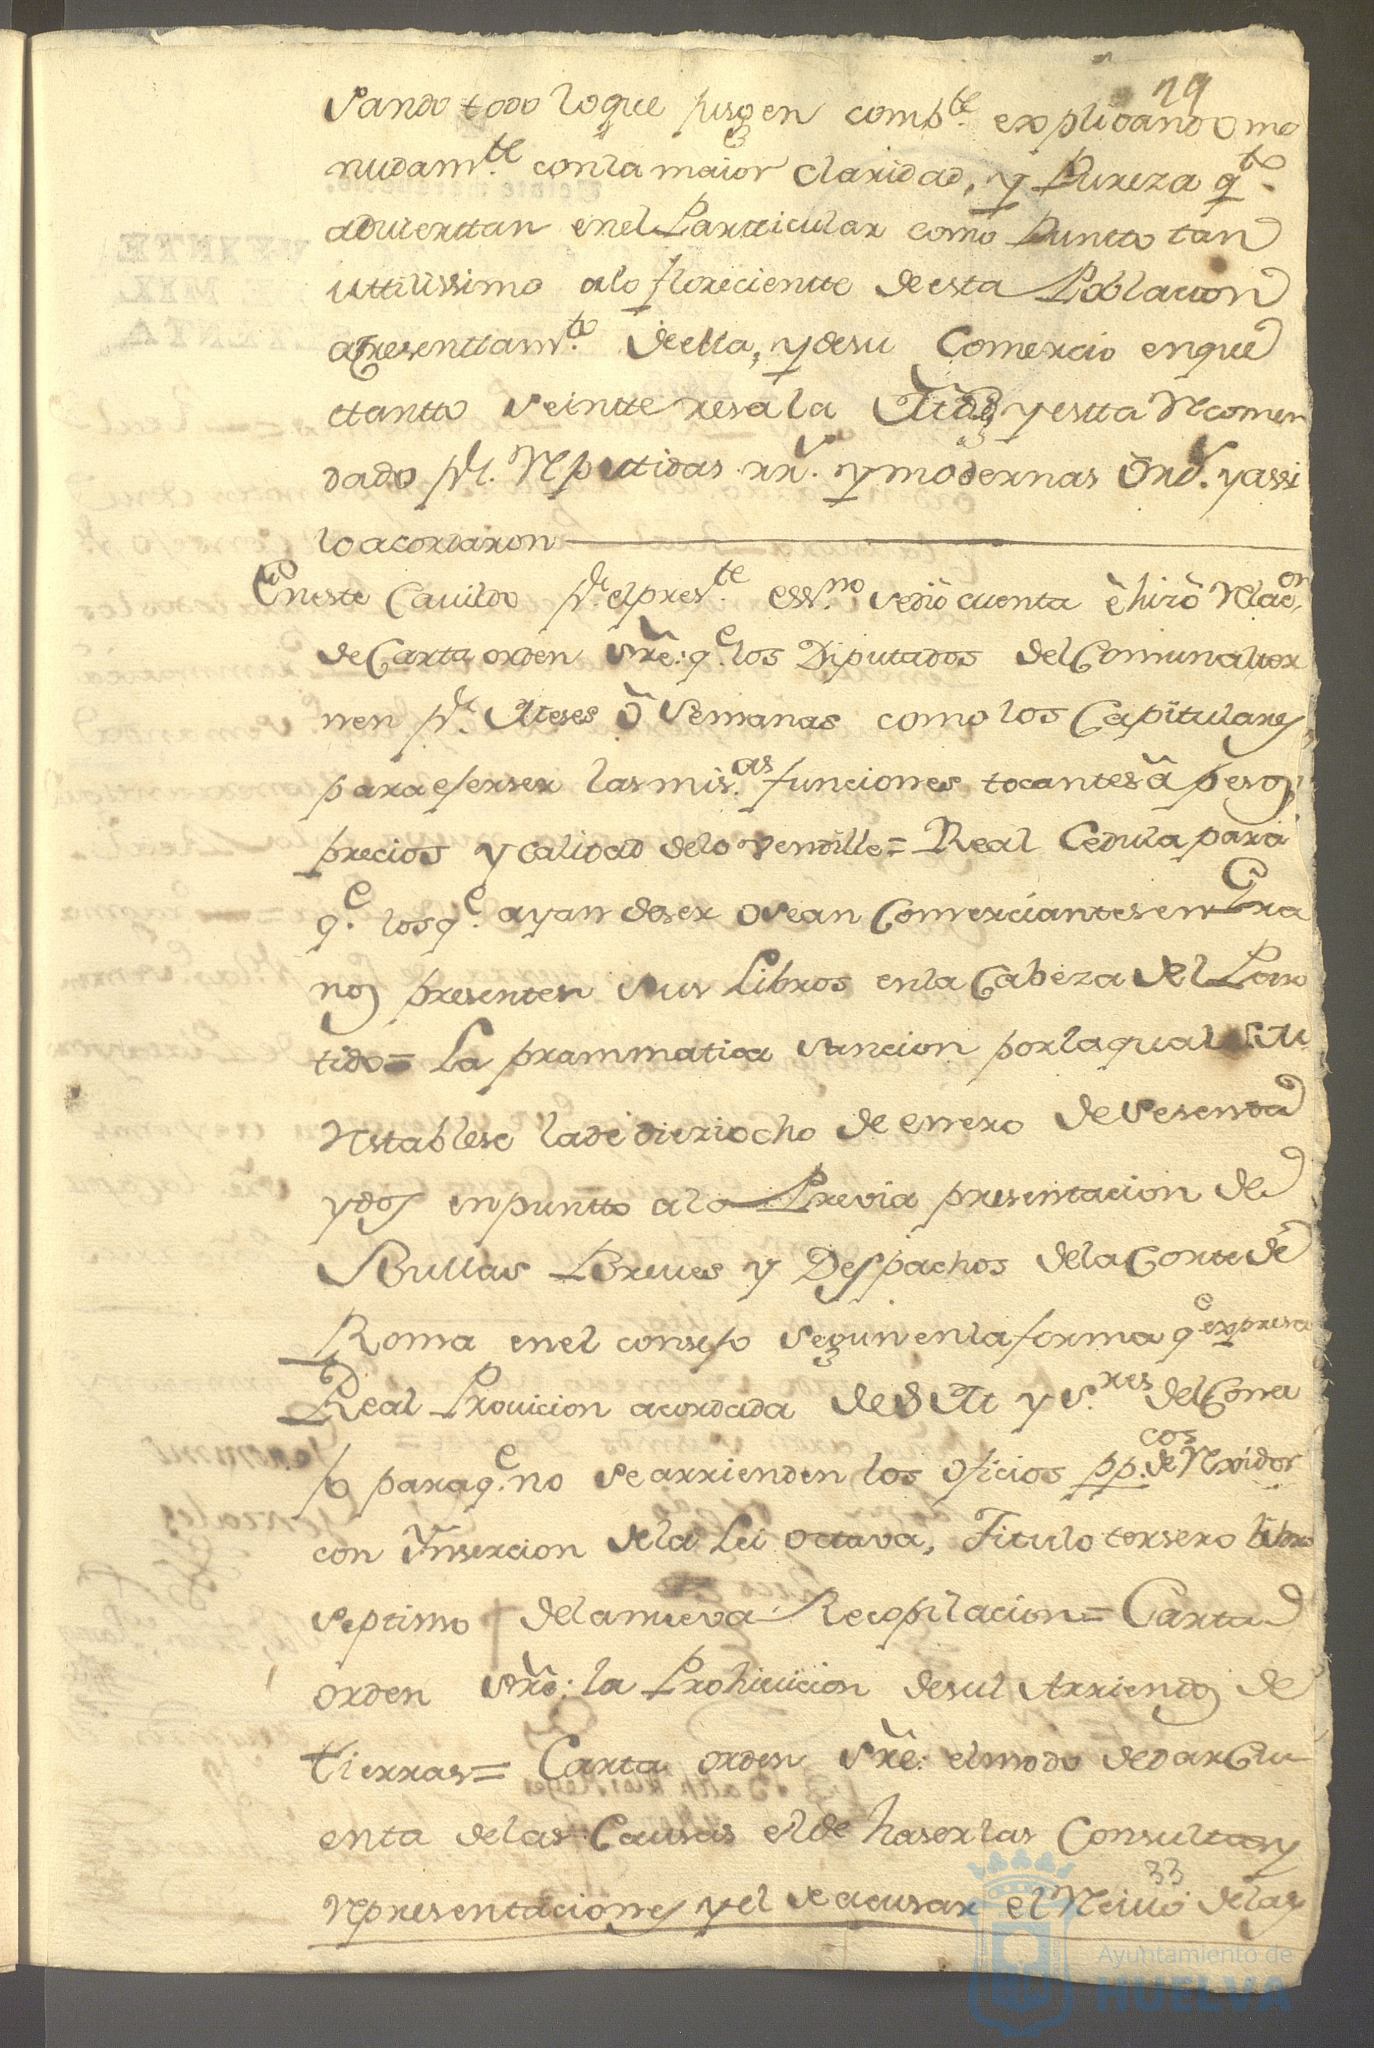 29
sando todo lo que jusgen combte. explicando me
nudamte. con la maior claridad, y Pureza qto.
advierttan en el Partticular como Puntto tan
uttilissimo a lo floreciente de esta Poblacion
acresenttamto. de ella, y de su Comercio en que
ttantto se intteresa la Ciud y estta Recomen
dado pr. Repettidas rrs. y modernas Ords. y assi
lo acordaron
En este Cavildo pr. el preste. essno. se dio cuenta è hizô Relaon.
de Carta orden sre: qe. los Diputados del Comun alter
nen pr. Meses ô Semanas como los Capitulares,
para eserser las misas. funciones tocantes â pesos
precios y calidad de lo vendible = Real Cedula para
qe. los qe. ayan de ser o sean Comerciantes en Gra
nos presenten sus Libros en la Cabeza del Parr
tido = La prammatica sancion por la qual S. M.
Restablese la de dieziocho de enero de sesenta
y dos en puntto a la Previa presentacion de
Bullas Breves y Despachos de la Corte de
Roma en el consejo segun en la forma qe expresa
Real Provicion acordada de S M y Sres del Conse
jo para qe. no se arrienden los oficios ppcos. de Rexidor
con Ynsercion de la Lei octava, Titulo tersero libro
septimo de la nueva Recopilacion = Carta
orden sre: la Prohivicion de sul Arriendos de
tierras = Carta orden sre: el modo de dar Cu
enta de las Causas el de haser las Consultas y
Representaciones y el de acusar el Recivo de las
33
Ayuntamiento de
HUELVA